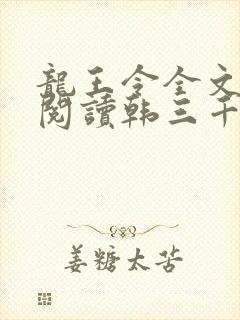 龍王令全文
閱讀韩三千
姜糖太苦